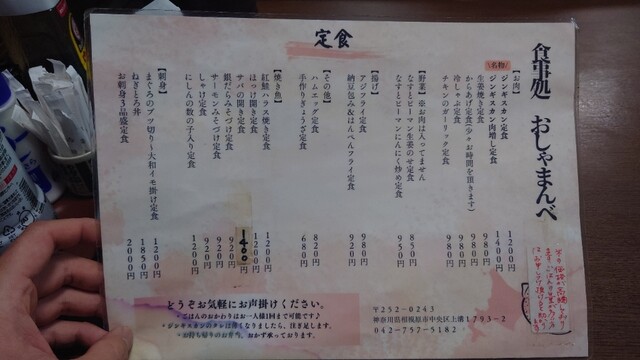 食事処 おしゃまんべ
定食
【お肉】
名物
ジンギスカン定食 1200円
ジンギスカン肉増し定食 1400円
生姜焼き定食 980円
からあげ定食(少々お時間を頂きます) 980円
冷しゃぶ定食
チキンのガーリック定食 980円
【野菜】※お肉は入ってません
なすとピーマン生姜のせ定食 850円
なすとピーマンにんにく炒め定食 950円
【揚げ】
アジフライ定食 980円
納豆包み&はんぺんフライ定食 920円
【その他】
ハムエッグ定食 820円
手作りぎょうざ定食 680円
【焼き魚】
紅鮭ハラス焼き定食 1200円
ほっけ開き定食 1200円
サバの開き定食 1400円
銀だらみそづけ定食 920円
サーモンみそづけ定食 920円
しゃけ定食 920円
にしんの数の子入り定食 1200円
【刺身】
まぐろのブツ切り〜大和イモ掛け定食 1200円
ねぎとろ丼 1850円
お刺身3品盛定食 2000円
どうぞお気軽にお声掛けください。
・ごはんのおかわりはお一人様1回まで可能です♪
・ジンギスカンのタレは薄くなりましたら、注ぎ足します。
・お持ち切りのお弁当、おかず承っております。
〒252-0243
神奈川県相模原市中央区上溝1793-2
042-757-5182